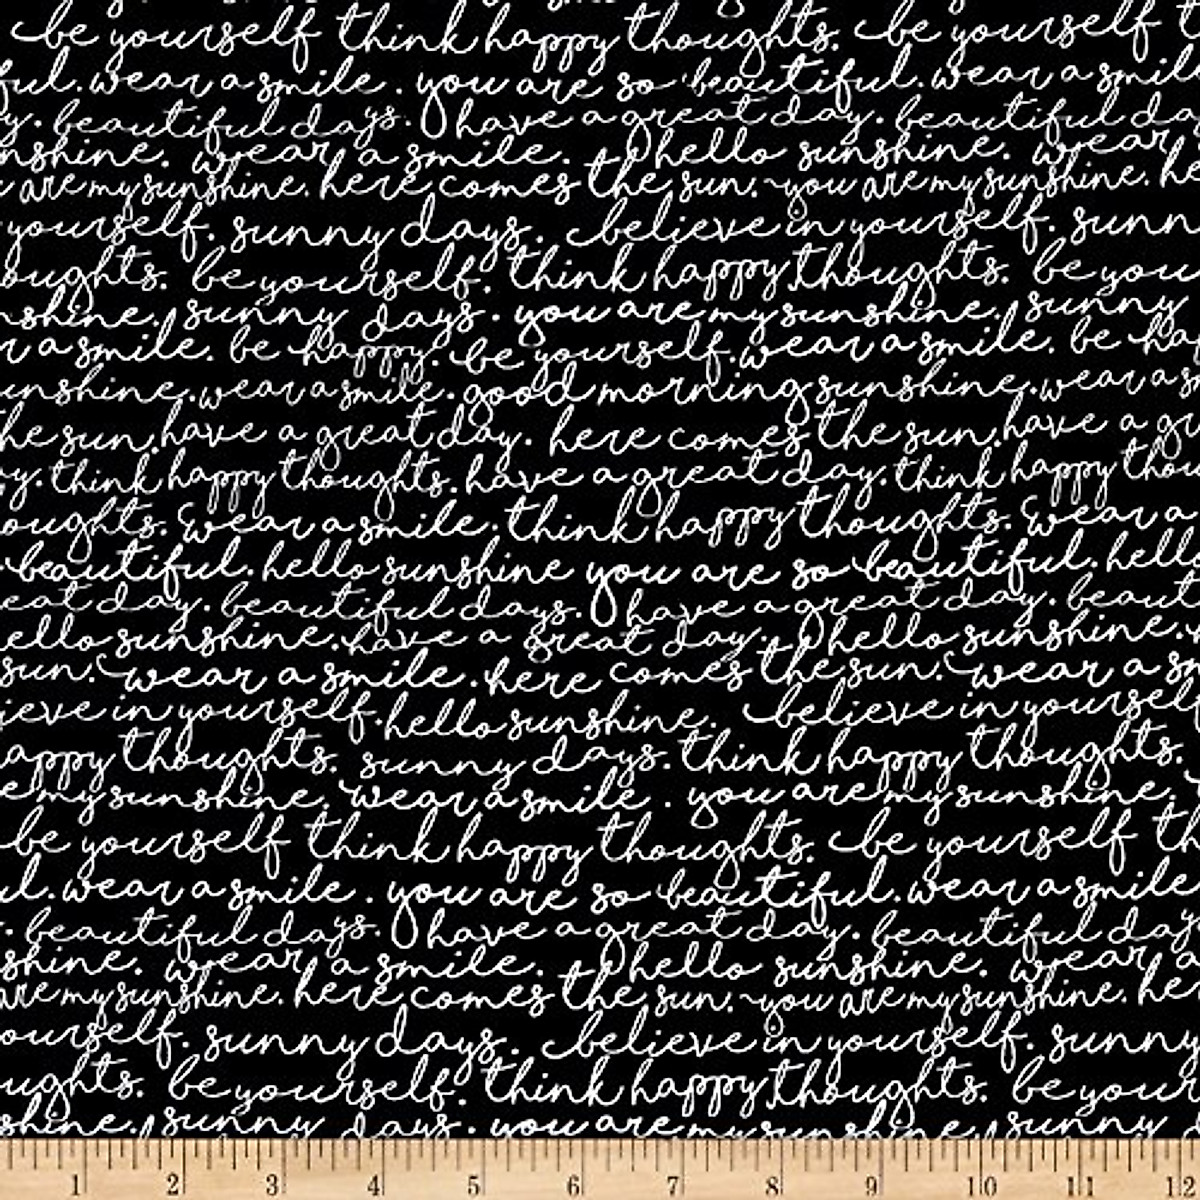 be yourself think happy thoughts. be yourself t
ful. wear a smile. you are so beautiful. wear a smil
y. beautiful days. have a great day. beautiful da
nshine. wear a smile. hello sunshine. wear
are my sunshine. here comes the sun. you are my sunshine. he
yourself. sunny days. believe in yourself. sunn
oughts. be yourself. think happy thoughts. be you
nshine. sunny days. you are my sunshine. sunny
r a smile. be happy. be yourself. wear a smile. be ha
unshine. wear a smile. good morning sunshine. wear a s
he sun. have a great day. here comes the sun. have a gr
y. think happy thoughts. have a great day. think happy thou
oughts. wear a smile. think happy thoughts. wear a
beautiful. hello sunshine you are so beautiful. hell
eat day. beautiful days. have a great day. beaut
ello sunshine. have a great day. hello sunshine.
sun. wear a smile. here comes the sun. wear a sm
ieve in yourself. hello sunshine. believe in yourself
appy thoughts. sunny days. think happy thoughts.
e my sunshine. wear a smile. you are my sunshine.
be yourself think happy thoughts. be yourself th
ul. wear a smile. you are so beautiful. wear a smile
. beautiful days. have a great day. beautiful day
shine. wear a smile. hello sunshine. wear a
are my sunshine. here comes the sun. you are my sunshine. her
ourself. sunny days. believe in yourself. sunny
ughts. be yourself. think happy thoughts. be your
shine. sunny days. you are my sunshine. sunny d
1 2 3 4 5 6 7 8 9 10 11 12